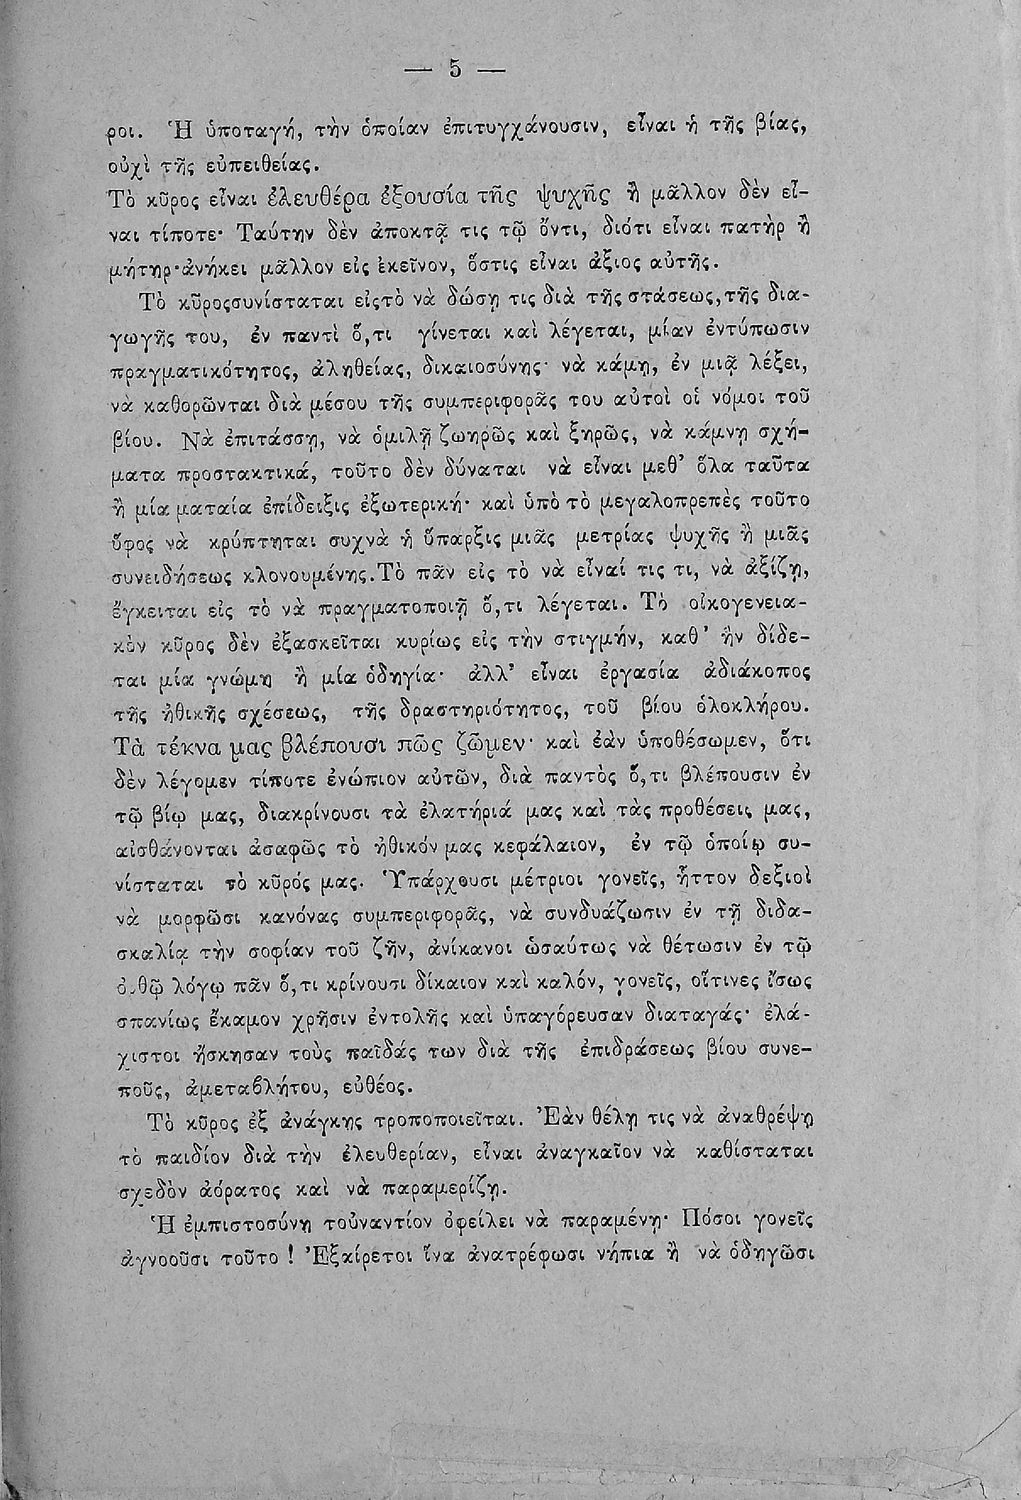 — 5 —
ροι. Ἡ ὑποταγή, τὴν ὁποίαν ἐπιτυγχάνουσιν, εἶναι ἡ τῆς βίας,
οὐχὶ τῆς εὐπειθείας.
Τὸ κῦρος εἶναι ἐλευθέρα ἐξουσία τῆς ψυχῆς ἢ μᾶλλον δὲν εἶ-
ναι τίποτε· Ταύτην δὲν ἀποκτᾷ τις τῷ ὄντι, διότι εἶναι πατὴρ ἢ
μήτηρ·ἀνήκει μᾶλλον εἰς ἐκεῖνον, ὅστις εἶναι ἄξιος αὐτῆς.
Τὸ κῦροςσυνίσταται εἰςτὸ νὰ δώσῃ τις διὰ τῆς στάσεως,τῆς δια-
γωγῆς του, ἐν παντὶ ὅ,τι γίνεται καὶ λέγεται, μίαν ἐντύπωσιν
πραγματικότητος, ἀληθείας, δικαιοσύνης· νὰ κάμῃ, ἐν μιᾷ λέξει,
νὰ καθορῶνται διὰ μέσου τῆς συμπεριφορᾶς του αὐτοὶ οἱ νόμοι τοῦ
βίου. Νὰ ἐπιτάσσῃ, νὰ ὁμιλῇ ζωηρῶς καὶ ξηρῶς, νὰ κάμνῃ σχή-
ματα προστακτικά, τοῦτο δὲν δύναται νὰ εἶναι μεθ’ ὅλα ταῦτα
ἢ μία ματαία ἐπίδειξις ἐξωτερική· καὶ ὑπὸ τὸ μεγαλοπρεπὲς τοῦτο
ὕφος νὰ κρύπτηται συχνὰ ἡ ὕπαρξις μιᾶς μετρίας ψυχῆς ἢ μιᾶς
συνειδήσεως κλονουμένης.Τὸ πᾶν εἰς τὸ νὰ εἶναί τις τι, νὰ ἀξίζῃ,
ἔγκειται εἰς τὸ νὰ πραγματοποιῇ ὅ,τι λέγεται. Τὸ οἰκογενεια-
κὸν κῦρος δὲν ἐξασκεῖται κυρίως εἰς τὴν στιγμήν, καθ’ ἣν δίδε-
ται μία γνώμη ἢ μία ὁδηγία· ἀλλ’ εἶναι ἐργασία ἀδιάκοπος
τῆς ἠθικῆς σχέσεως, τῆς δραστηριότητος, τοῦ βίου ὁλοκλήρου.
Τὰ τέκνα μας βλέπουσι πῶς ζῶμεν· καὶ ἐὰν ὑποθέσωμεν, ὅτι
δὲν λέγομεν τίποτε ἐνώπιον αὐτῶν, διὰ παντὸς ὅ,τι βλέπουσιν ἐν
τῷ βίῳ μας, διακρίνουσι τὰ ἐλατήριά μας καὶ τὰς προθέσεις μας,
αἰσθάνονται ἀσαφῶς τὸ ἠθικόν μας κεφάλαιον, ἐν τῷ ὁποίῳ συ-
νίσταται τὸ κῦρός μας. Ὑπάρχουσι μέτριοι γονεῖς, ἧττον δεξιοὶ
νὰ μορφῶσι κανόνας συμπεριφορᾶς, νὰ συνδυάζωσιν ἐν τῇ διδα-
σκαλίᾳ τὴν σοφίαν τοῦ ζῆν, ἀνίκανοι ὡσαύτως νὰ θέτωσιν ἐν τῷ
ὀρθῷ λόγῳ πᾶν ὅ,τι κρίνουσι δίκαιον καὶ καλόν, γονεῖς, οἵτινες ἴσως
σπανίως ἔκαμον χρῆσιν ἐντολῆς καὶ ὑπαγόρευσαν διαταγάς· ἐλά-
χιστοι ἤσκησαν τοὺς παῖδάς των διὰ τῆς ἐπιδράσεως βίου συνε-
ποῦς, ἀμεταβλήτου, εὐθέος.
Τὸ κῦρος ἐξ ἀνάγκης τροποποιεῖται. Ἐὰν θέλῃ τις νὰ ἀναθρέψῃ
τὸ παιδίον διὰ τὴν ἐλευθερίαν, εἶναι ἀναγκαῖον νὰ καθίσταται
σχεδὸν ἀόρατος καὶ νὰ παραμερίζῃ.
Ἡ ἐμπιστοσύνη τοὐναντίον ὀφείλει νὰ παραμένῃ· Πόσοι γονεῖς
ἀγνοοῦσι τοῦτο ! Ἐξαίρετοι ἵνα ἀνατρέφωσι νήπια ἢ νὰ ὁδηγῶσι